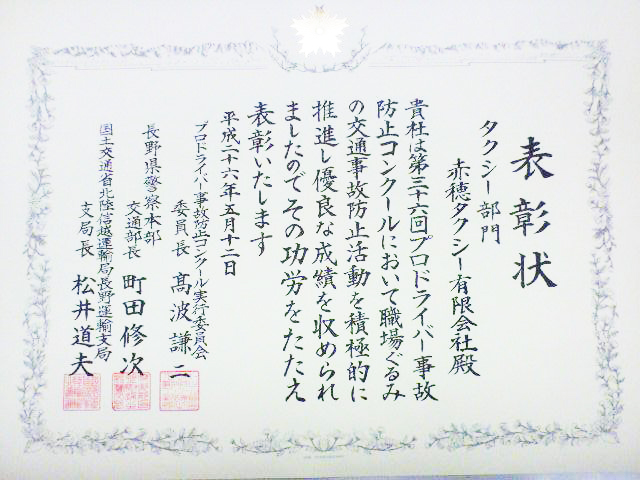 表彰状
タクシー部門
赤穂タクシー有限会社殿
貴社は第三十六回プロドライバー事故
防止コンクールにおいて職場ぐるみ
の交通事故防止活動を積極的に
推進し優良な成績を収められ
ましたのでその功労をたたえ
表彰いたします
平成二十六年五月十二日
プロドライバー事故防止コンクール実行委員会
委員長 髙波謙二
長野県警察本部
交通部長 町田修次
国土交通省北陸信越運輸局長野運輸支局
支局長 松井道夫